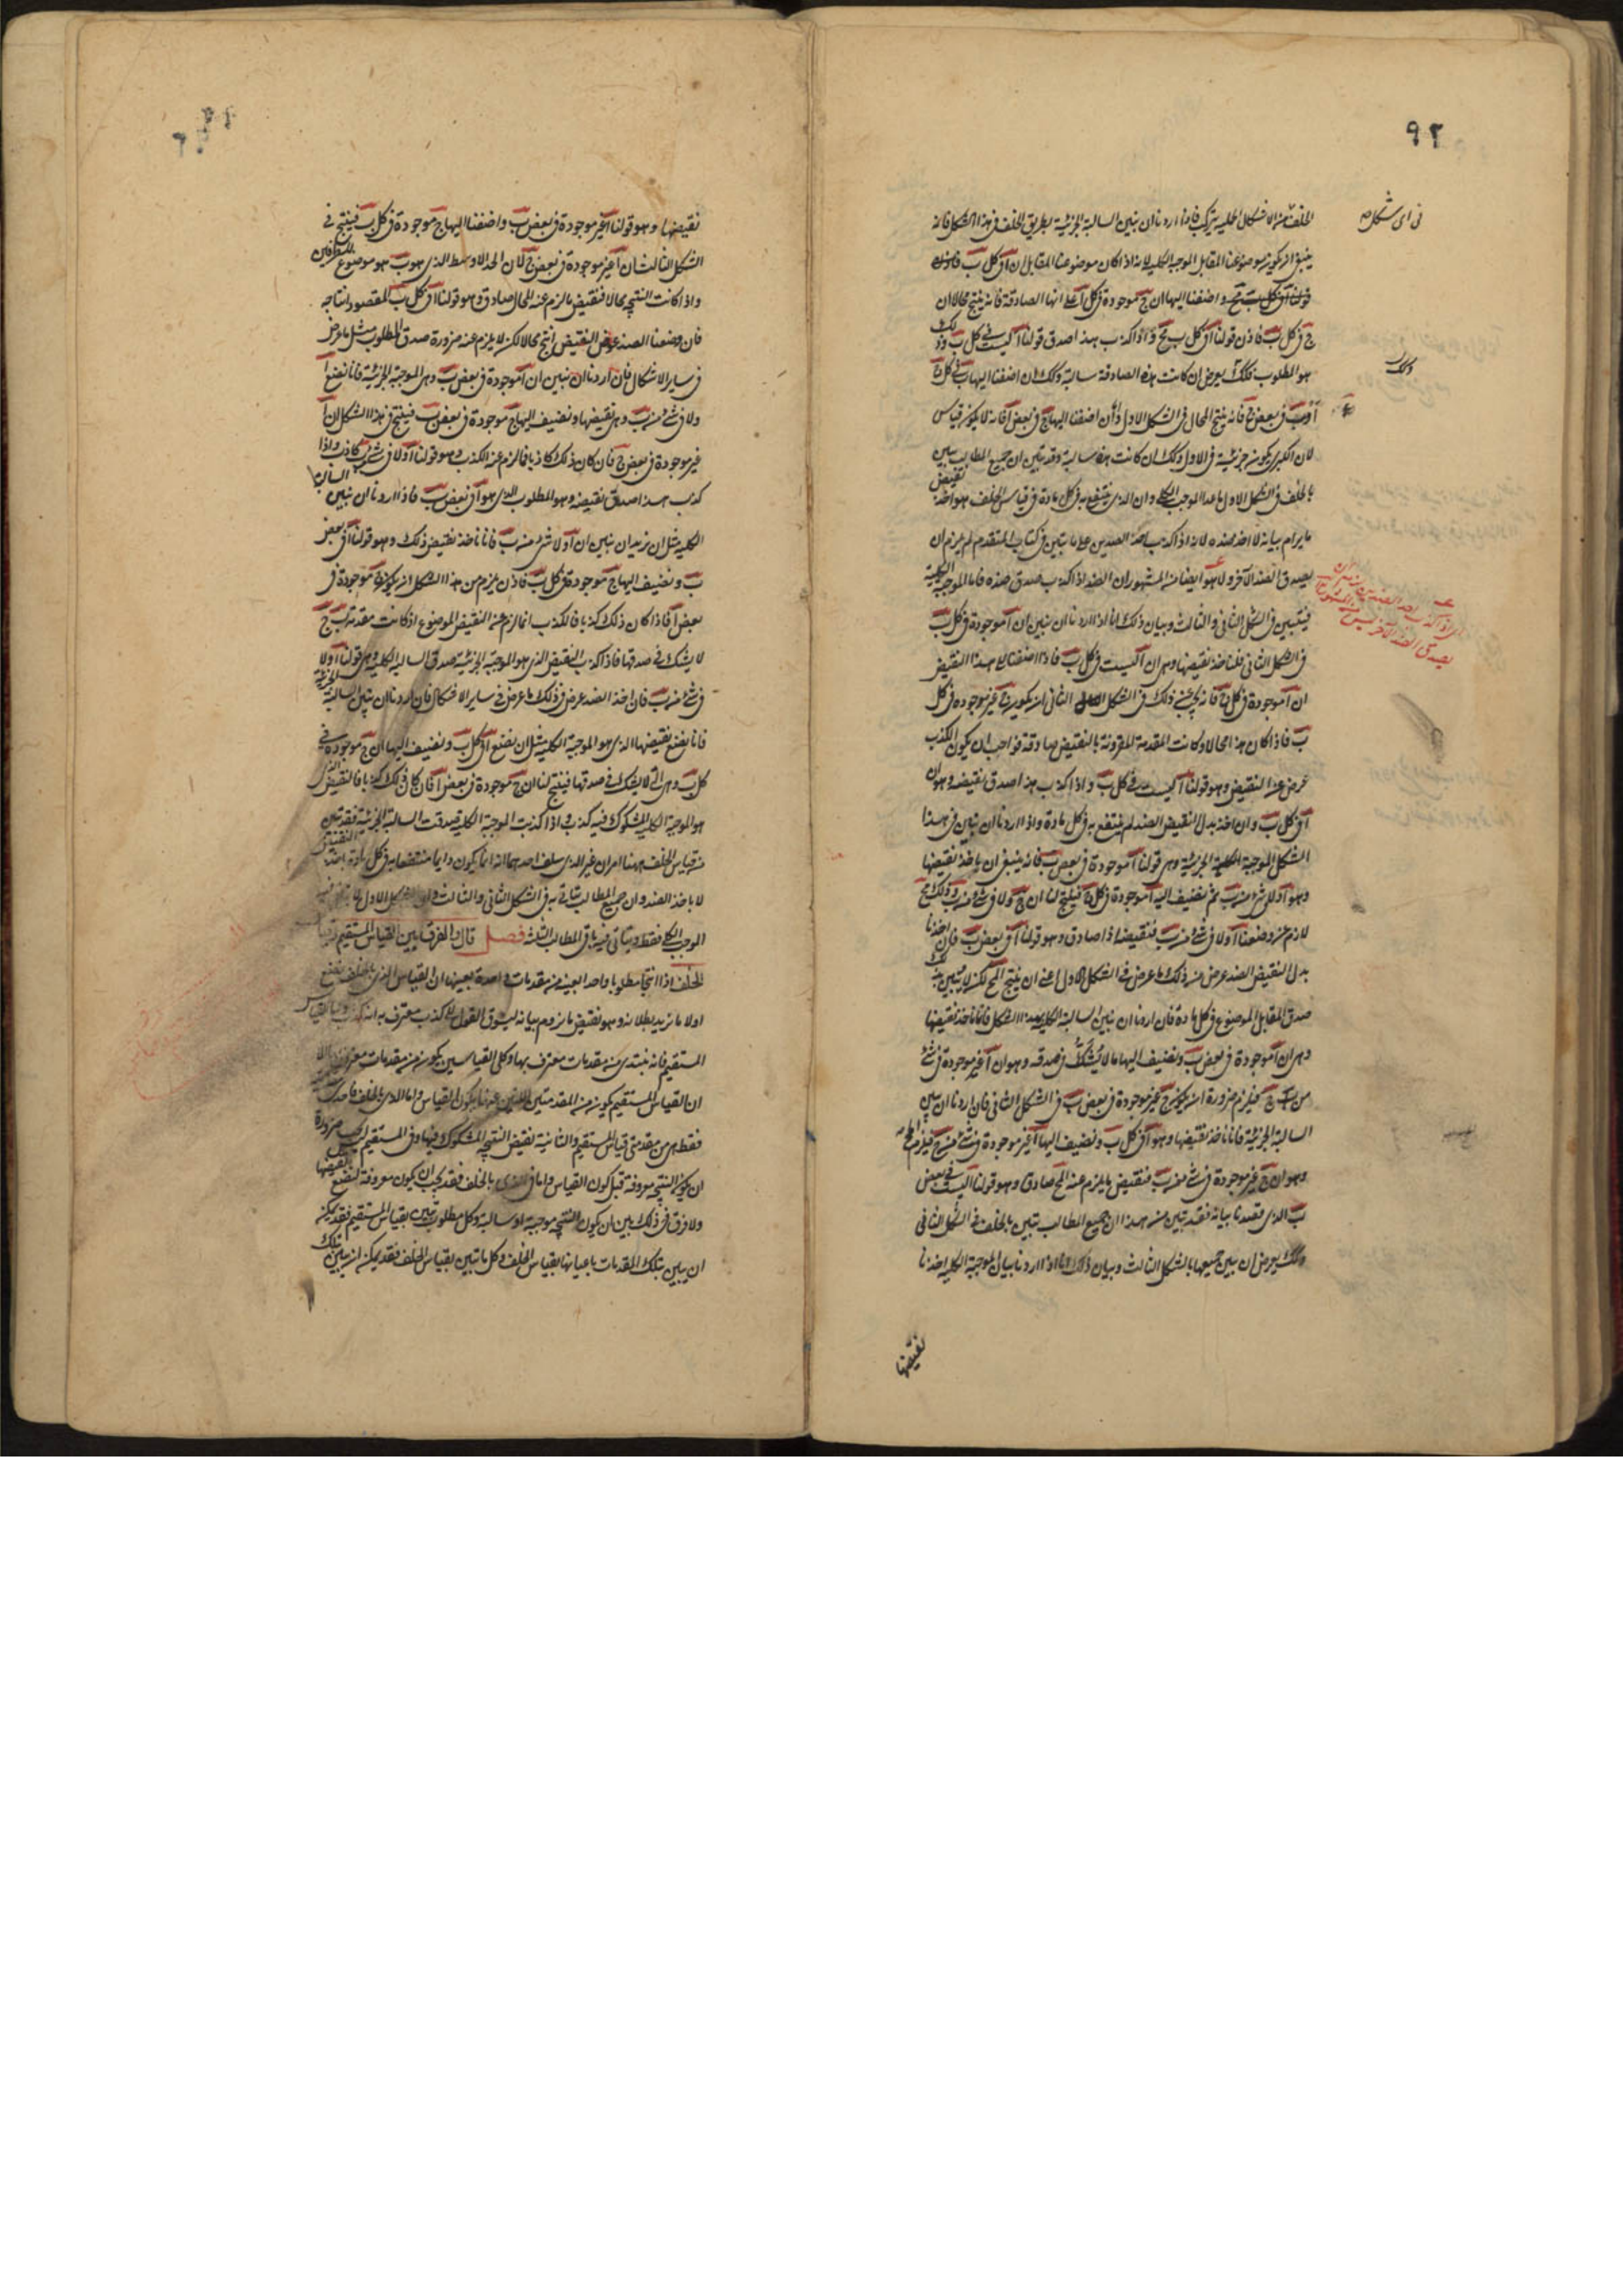 ٩٢
في اى شكل
الخلف من الاشكال الحملية يتركب فاذا اردنا ان نبين السالبة الجزئية بطريق الخلف في هذا الشكل فانه
ينبغي ان يكون موضوعنا المقابل الموجبة الكلية لانه اذا كان موضوعنا المقابل ان آ في كل ب فاذن
قولنا آ في كل ب واضفنا اليها ان ج موجودة في كل آ على انها الصادقة فانه ينتج محالا ان
ج في كل ب فاذن قولنا آ في كل ب مح واذا كذب هذا صدق قولنا آ ليست في كل ب
هو المطلوب وكذلك يعرض ان كانت هذه الصادقة سالبة وكذلك ان اضفنا اليها ب في كل
آ وب في بعض ج فانه ينتج المحال في الشكل الاول وان اضفنا اليها ج في بعض آ فانه لا يكون قياس
لان الكبرى يكون جزئية في الاول وكذلك ان كانت هذه سالبة وقد تبين ان جميع المطالب تبين
بالخلف في الشكل الاول ما عدا الموجب الكلي وان الذي ينتفع به في كل مادة في قياس الخلف هو اخذ نقيض
ما يرام بيانه لا اخذ ضده لانه اذا كذب احد الضدين على ما تبين في كتاب المتقدم لم يلزم ان
يصدق الضد الآخر ولا هو ايضا من المشهور ان الضد اذا كذب صدق ضده فاما الموجبة الكلية
فيتبين في الشكل الثاني والثالث وبيان ذلك انا اذا اردنا ان نبين ان آ موجودة في كل ب
في الشكل الثاني فلناخذ نقيضها وهي ان آ ليست في كل ب فاذا اضفنا الى هذا النقيض
ان آ موجودة في كل ج فانه يجب عن ذلك في الشكل الثاني ان يكون ج غير موجودة في كل
ب فاذا كان هذا محالا وكانت المقدمة المقرونة بالنقيض صادقة فواجب ان يكون الكذب
عرض عن النقيض وهو قولنا آ ليست في كل ب واذا كذب هذا صدق نقيضه وهو ان
آ في كل ب وان اخذ بدل النقيض الضد لم ينتفع به في كل مادة واذا اردنا ان نبين في هذا
الشكل الموجبة الجزئية وهي قولنا آ موجودة في بعض ب فانه ينبغي ان ياخذ نقيضها
وهو آ ولا في شيء من ب ثم نضيف اليه آ موجودة في كل ج فينتج لنا ان ج ولا في شيء من ب وذلك مح
لازم عن وضعنا آ ولا في شيء من ب فنقيضه اذا صادق وهو قولنا آ في بعض ب فان اخذنا
بدل النقيض الضد عرض من ذلك ما عرض في الشكل الاول اعني ان ينتج المح لكن لا يتبين منه
صدق المقابل الموضوع في كل مادة فان اردنا ان نبين السالبة الكلية بهذا الشكل فانا ناخذ نقيضها
وهي ان آ موجودة في بعض ب ونضيف اليها ما لا يشك في صدقه وهو ان آ غير موجودة في شيء
من ج فيلزم ضرورة ان يكون ج غير موجودة في بعض ب في الشكل الثاني فان اردنا ان نبين
السالبة الجزئية فانا ناخذ نقيضها وهو آ في كل ب ونضيف اليها آ غير موجودة في شيء من ج فيلزم
وهو ان ج غير موجودة في شيء من ب فنقيض ما يلزم عنه المح صادق وهو قولنا آ ليست في بعض
ب الذي قصدنا بيانه فقد تبين من هذا ان جميع المطالب تبين بالخلف في الشكل الثاني
وكذلك يعرض ان يبين جميعها بالشكل الثالث وبيان ذلك انا اذا اردنا بيان الموجبة الكلية اخذنا
نقيضها
نقيضها وهو قولنا آ غير موجودة في بعض ب واضفنا اليها ج موجودة في كل ب فينتج في
الشكل الثالث ان آ غير موجودة في بعض ج لان الحد الاوسط الذي هو ب هو موضوع للطرفين
واذا كانت النتيجة محالا فنقيض ما لزم عنه المحال صادق وهو قولنا آ في كل ب المقصود انتاجه
فان وضعنا الضد عوض النقيض انتج محالا لكن لا يلزم عنه ضرورة صدق المطلوب مثل ما عرض
في ساير الاشكال فان اردنا ان نبين ان آ موجودة في بعض ب وهي الموجبة الجزئية فانا نضع آ
ولا في شيء من ب وهي نقيضها ونضيف اليها ج موجودة في بعض ب فينتج في هذا الشكل ان آ
غير موجودة في بعض ج فان كان ذلك كاذبا فالزم عنه الكذب وهو قولنا آ ولا في شيء من ب كاذب واذا
كذب هذا صدق نقيضه وهو المطلوب الذي هو آ في بعض ب فاذا اردنا ان نبين السالبة
الكلية مثل ان نريد ان نبين ان آ ولا شيء من ب فانا ناخذ نقيض ذلك وهو قولنا آ في بعض
ب ونضيف اليها ج موجودة في كل ب فاذن يلزم من هذا الشكل ان يكون ج موجودة في
بعض آ فاذا كان ذلك كذبا فالكذب انما لزم عن النقيض الموضوع اذ كانت مقدمة ب ج
لا يشك في صدقها فاذا كذب النقيض الذي هو الموجبة الجزئية صدق السالبة الكلية وهي قولنا آ ولا
في شيء من ب فان اخذ الضد عرض في ذلك ما عرض في ساير الاشكال فان اردنا ان نبين السالبة الجزئية
فانا نضع نقيضها الذي هو الموجبة الكلية مثل ان نضع آ في كل ب ونضيف اليها ان ج موجودة في
كل ب وهي التي لا يشك في صدقها فينتج لنا ان ج موجودة في بعض آ فان كان ذلك كذبا فالنقيض الذي
هو الموجبة الكلية المشكوك فيه كذب واذا كذبت الموجبة الكلية صدقت السالبة الجزئية فقد تبين
من قياس الخلف ههنا امران غير الذي سلف احدهما انه انما يكون دايما منتفعا به في كل مادة باخذ النقيض
لا باخذ الضد وان جميع المطالب تتاتى به في الشكل الثاني والثالث وان الشكل الاول
الموجب الكلي فقط ويتاتى فيه باقي المطالب الثلثة فصل قال والفرق بين القياس المستقيم
الخلف اذا انتجا مطلوبا واحدا بعينه من مقدمات واحدة بعينها ان القياس الذي بالخلف نضع
اولا ما نريد بطلانه وهو نقيض ما نروم بيانه ليسوق القول الى كذب معترف به انه كذب
المستقيم فانه نبتدي من مقدمات معترف بها وكلي القياسين يكون من مقدمات معترف
ان القياس المستقيم يكون من المقدمتين اللتين عنهما يكون القياس واما الذي بالخلف فاحدى
فقط هي من مقدمتي قياس المستقيم والثانية نقيض النتيجة المشكوك فيها وفي المستقيم ليس ضرورة
ان يكون النتيجة معروفة قبل كون القياس واما في الذي بالخلف فقد يجب ان يكون معروفة لنضع نقيضها
ولا فرق في ذلك بين ان يكون النتيجة موجبة او سالبة وكل مطلوب تبين بقياس المستقيم فقد يمكن
ان يبين بتلك المقدمات باعيانها بقياس الخلف وكل ما تبين بقياس الخلف فقد يمكن ان يبين بتلك